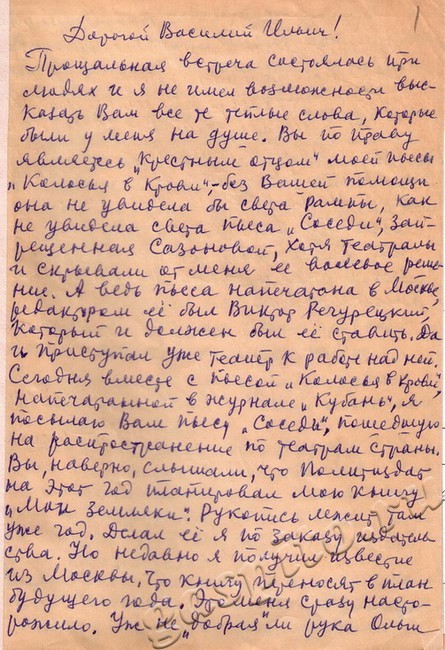 1
Дорогой Василий Ильич!
Прощальная встреча состоялась при
людях и я не имел возможности выс-
казать Вам все те теплые слова, которые
были у меня на душе. Вы по праву
являетесь „Крестным отцом" моей пьесы
„Колосья в крови", – без Вашей помощи
она не увидела бы света рампы, как
не увидела света пьеса „Соседи", зап-
рещенная Сазоновой, хотя театралы
и скрывали от меня ее волевое реше-
ние. А ведь пьеса напечатана в Москве,
редактором её был Виктор
который и должен был её ставить. Да
и приступал уже театр к работе над ней.
Сегодня вместе с пьесой „Колосья в крови",
напечатанной в журнале „Кубань", я
посылаю Вам пьесу „Соседи", пошедшую
на распространение по театрам страны.
Вы, наверно, слышали, что Политиздат
на этот год планировал мою книгу
„Мои земляки". Рукопись лежит там
уже год. Делал её я по заказу издатель-
ства. Но недавно я получил известие
из Москвы, что книгу переносят в план
будущего года. Это меня сразу насто-
рожило. Уж не „добрая" ли рука Ольги